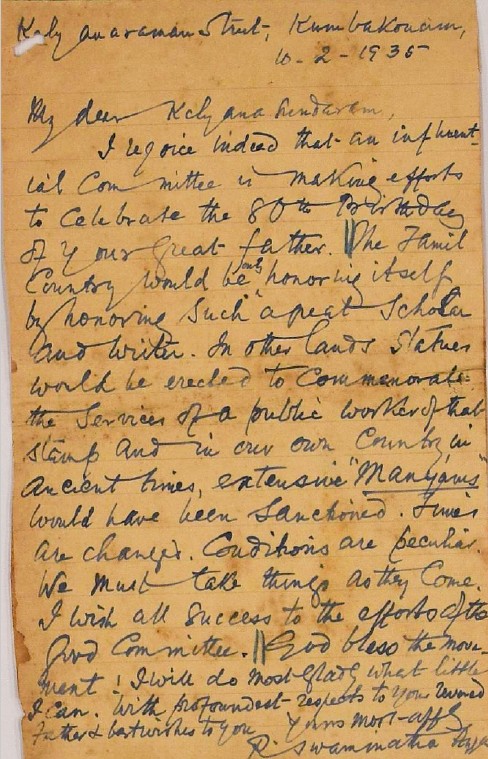 Kalyanaraman Street, Kumbakonam,
10-2-1935
My dear Kalyana Sundaram,
I rejoice indeed that an influent-
ial Committee is making efforts
to celebrate the 80th Birthday
of your great father. || The Tamil
Country would be only honoring itself
by honoring such a great Scholar
and writer. In other lands Statues
would be erected to Commemorate
the Services of a public worker of that
stamp and in our own Country, in
ancient times, extensive "Manyams"
would have been sanctioned. Times
are changed. Conditions are peculiar.
We must take things as they come.
I wish all success to the efforts of the
good Committee. || God bless the move-
ment! I will do most gladly what little
I can. With profoundest respects to your revered
Father & best wishes to you
Yours most affly
R. Swaminatha